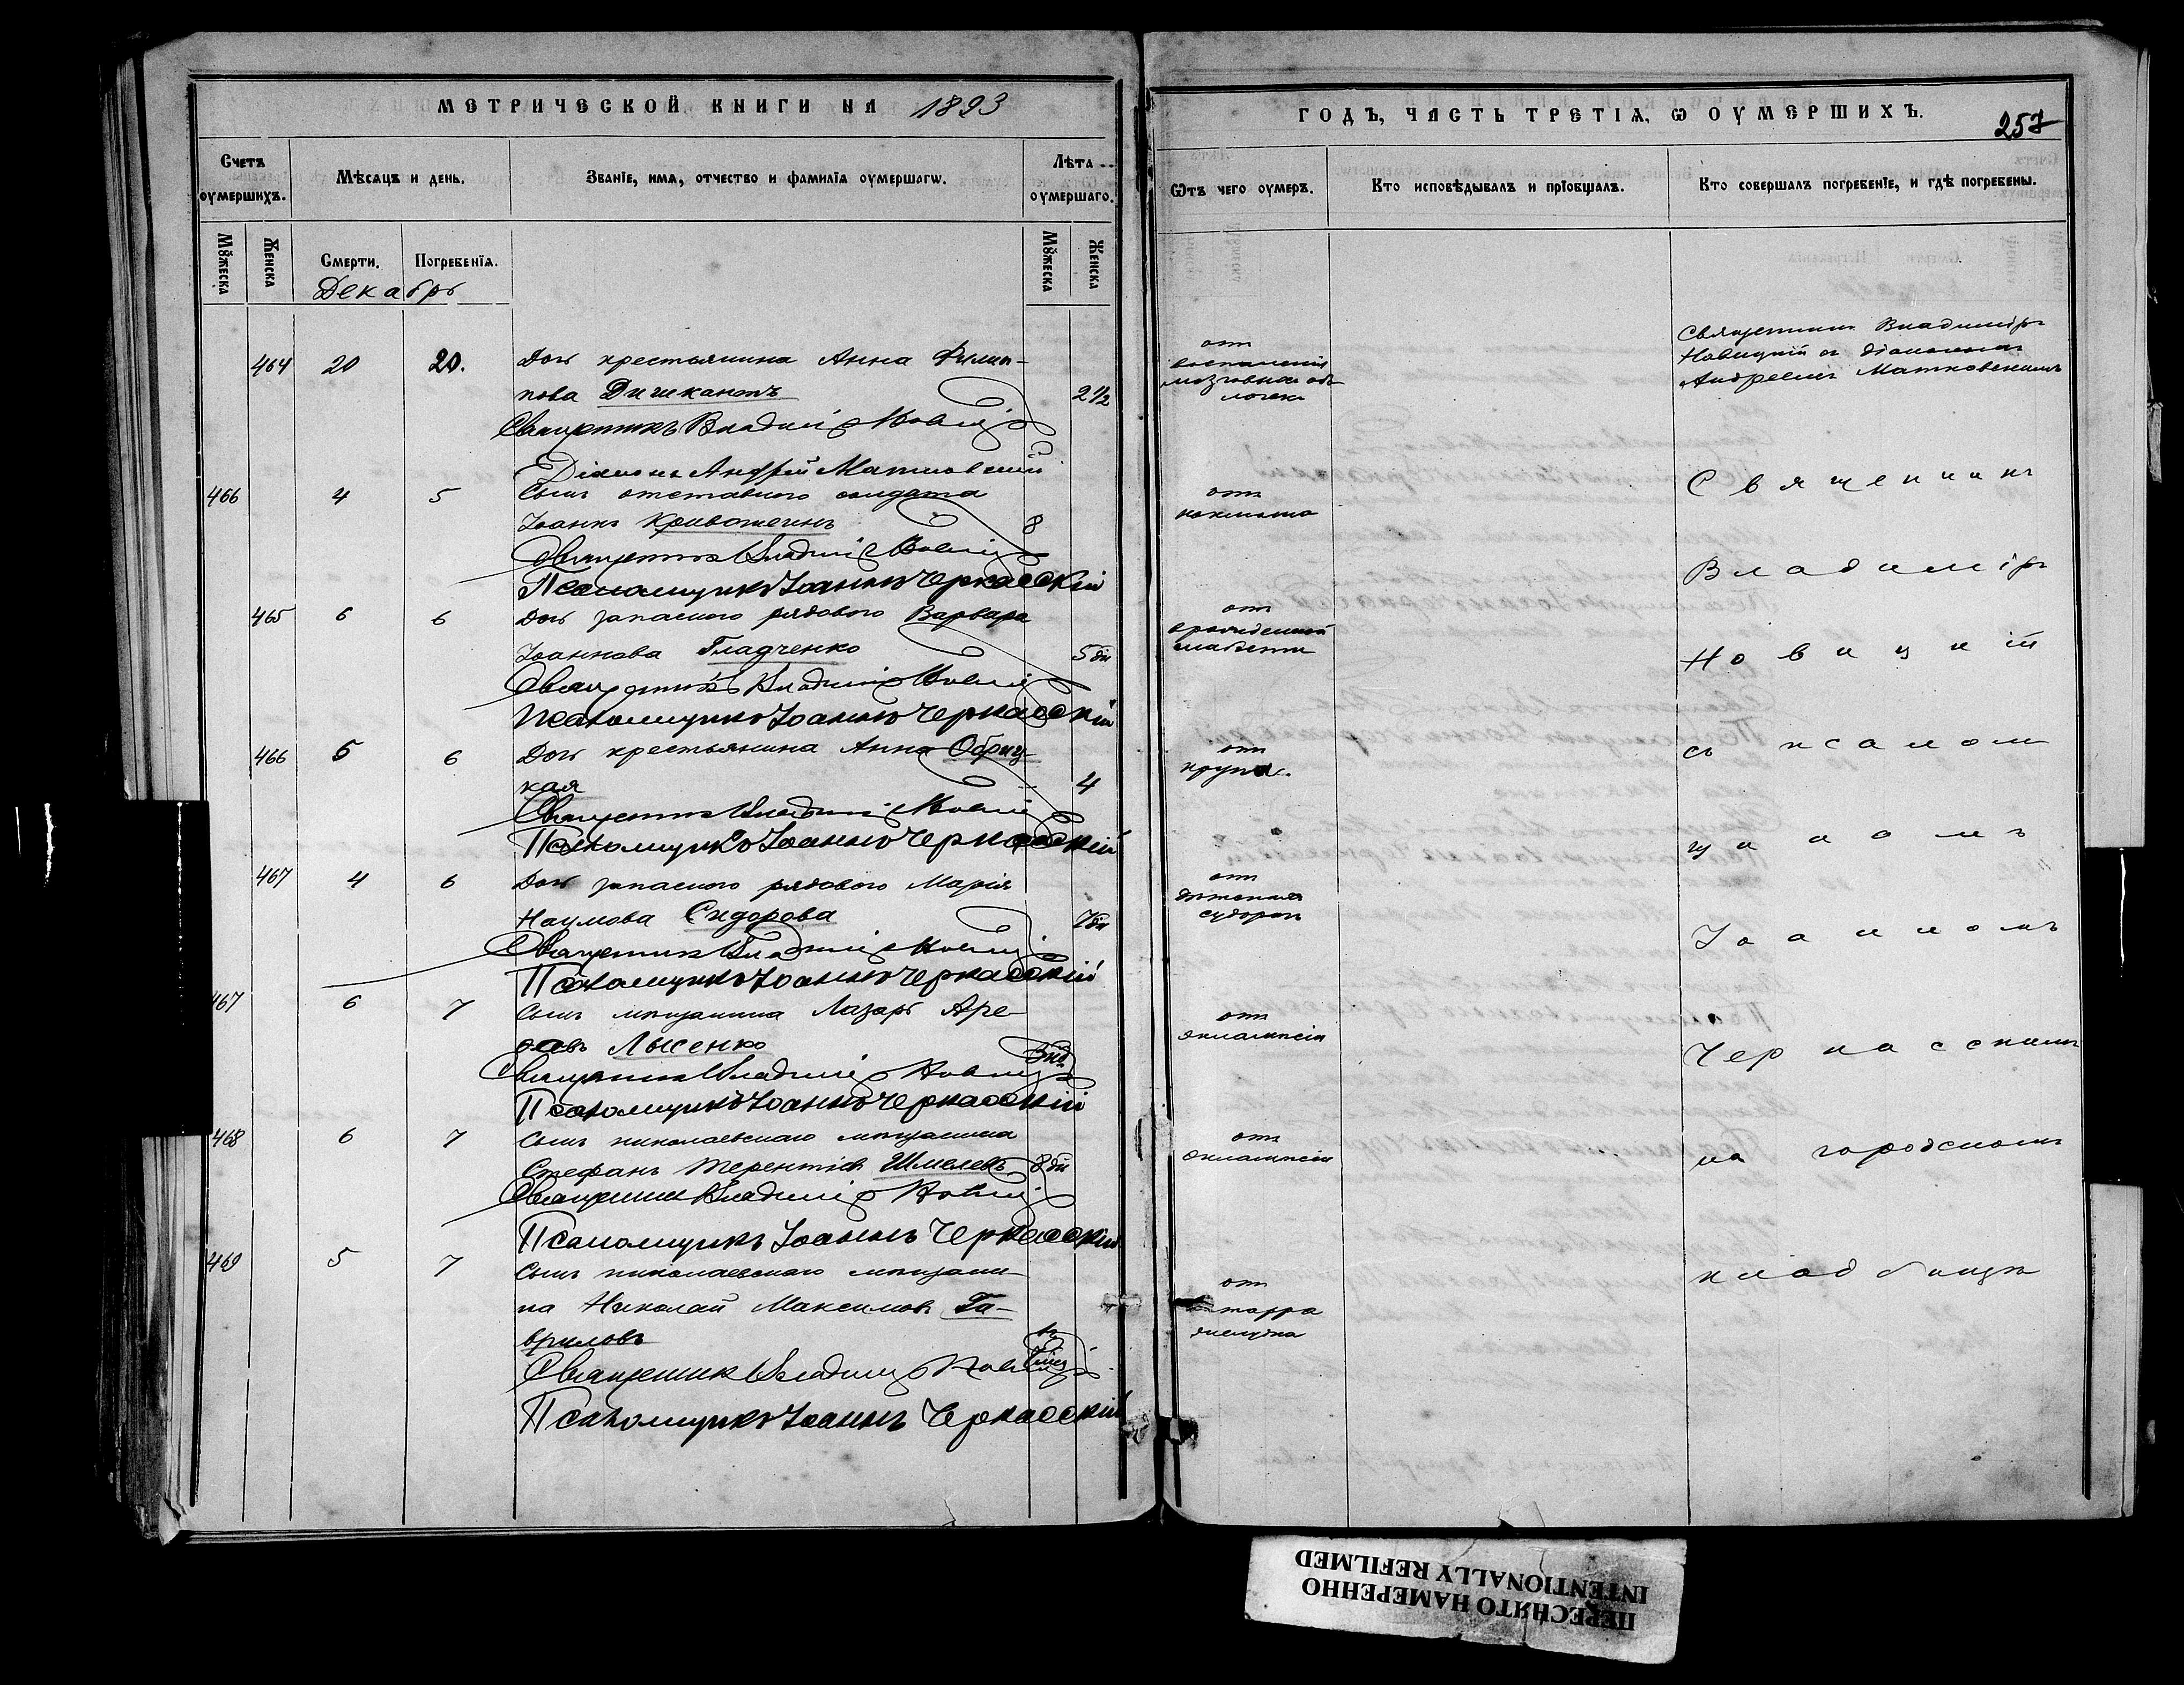 МЕТРИЧЕСКОЙ КНИГИ НА 1893
Счетъ оумершихъ.
Мѣсяцъ и день.
Званіе, имя, отчество и фамилія оумершагѡ.
Лѣта оумершаго.
Мꙋжеска
Женска
Смерти.
Погребенїя.
Мꙋжеска
Женска
Декабрь
464 20 20. Дочь крестьянина Анна Филип-
пова Дичикантъ 2 1/2
Священникъ Владиміръ Новицкій
Діаконъ Андрей Матковскій
466 4 5 Сынъ отставного солдата
Іоаннъ Кривошеинъ 8
Священникъ Владиміръ Новицкій
Псаломщикъ Іоаннъ Черкасскій
465 6 6 Дочь запасного рядового Варвара
Іоаннова Гладченко 5 дн
Священникъ Владиміръ Новицкій
Псаломщикъ Іоаннъ Черкасскій
466 5 6 Дочь крестьянина Анна Обриц-
кая 4
Священникъ Владиміръ Новицкій
Псаломщикъ Іоаннъ Черкасскій
467 4 6 Дочь запасного рядового Марія
Наумова Сидорова 7 дн
Священникъ Владиміръ Новицкій
Псаломщикъ Іоаннъ Черкасскій
467 6 7 Сынъ мѣщанина Лазарь Аре-
Лысенко 3 нед.
Священникъ Владиміръ Новицкій
Псаломщикъ Іоаннъ Черкасскій
468 6 7 Сынъ николаевскаго мѣщанина
Стефанъ Терентіев Шмелевъ 8 дн
Священникъ Владиміръ Новицкій
Псаломщикъ Іоаннъ Черкасскій
469 5 7 Сынъ николаевскаго мѣщани-
на Николай Максимов Га-
вриловъ
Священникъ Владиміръ Новицкій
Псаломщикъ Іоаннъ Черкасскій
ГОДЪ, ЧАСТЬ ТРЕТІѦ, Ѡ ОУМЕРШИХЪ.
257
Ѿтъ чего оумеръ.
Кто исповѣдывалъ и прїобщалъ.
Кто совершалъ погребенїе, и гдѣ погребены.
отъ
воспаленія
мозговыхъ обо-
лочекъ
отъ
коклюша
отъ
врожденной
слабости
отъ
крупа.
отъ
дѣтскихъ
судорогъ
отъ
эклампсіи
отъ
эклампсіи
отъ
катарра
желудка
Священникъ Владиміръ
Новицкій съ діакономъ
Андреемъ Матковскимъ
Священникъ
Владиміръ
Новицкій
съ псалом
щикомъ
Іоанномъ
Черкасскимъ
на городскомъ
кладбищѣ
ПЕРЕСНЯТО НАМЕРЕННО
INTENTIONALLY REFILMED